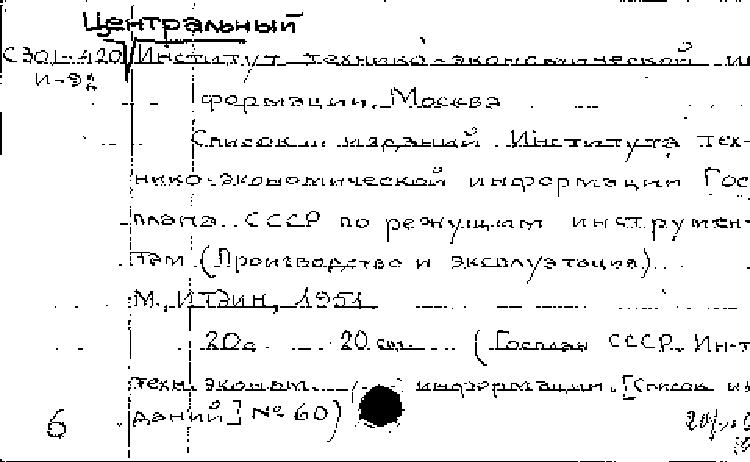 Центральный
С301-420 Институт технико-экономической ин
И-92
формации. Москва
Список изданий Института тех-
нико-экономической информации Гос
плана СССР по режущим инструмен-
там (Производство и эксплуатация)
М., ИТЭИН, 1951
20 с. 20 см. (Госплан СССР. Ин-т
техн. эконом. информации. [Список из
даний] № 60)
6